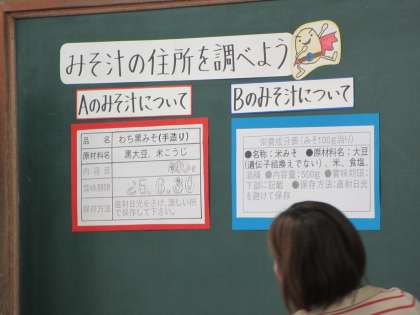 みそ汁の住所を調べよう
Aのみそ汁について
Bのみそ汁について
品 名 わち黒みそ(手造り)
原材料名 黒大豆、米こうじ
内 容 量
賞味期限 25.6.30
保存方法 直射日光をさけ、涼しい所
で保存して下さい。
栄養成分表(みそ100g当り)
●名称:米みそ ●原材料名:大豆
(遺伝子組換えでない)、米、食塩、
酒精 ●内容量:500g ●賞味期限:
下部に記載 ●保存方法:直射日光
を避けて保存